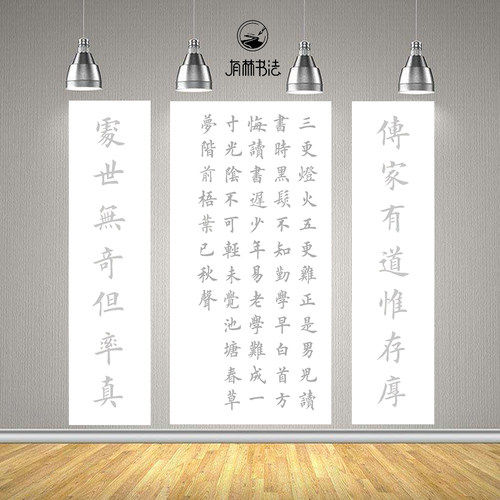 有林书法
傳家有道惟存厚
三更燈火五更雞正是男児讀
書時黑髮不知勤學早白首方
悔讀書遲少年易老學難成一
寸光陰不可輕未覺池塘春草
夢階前梧葉已秋聲
處世無奇但率真